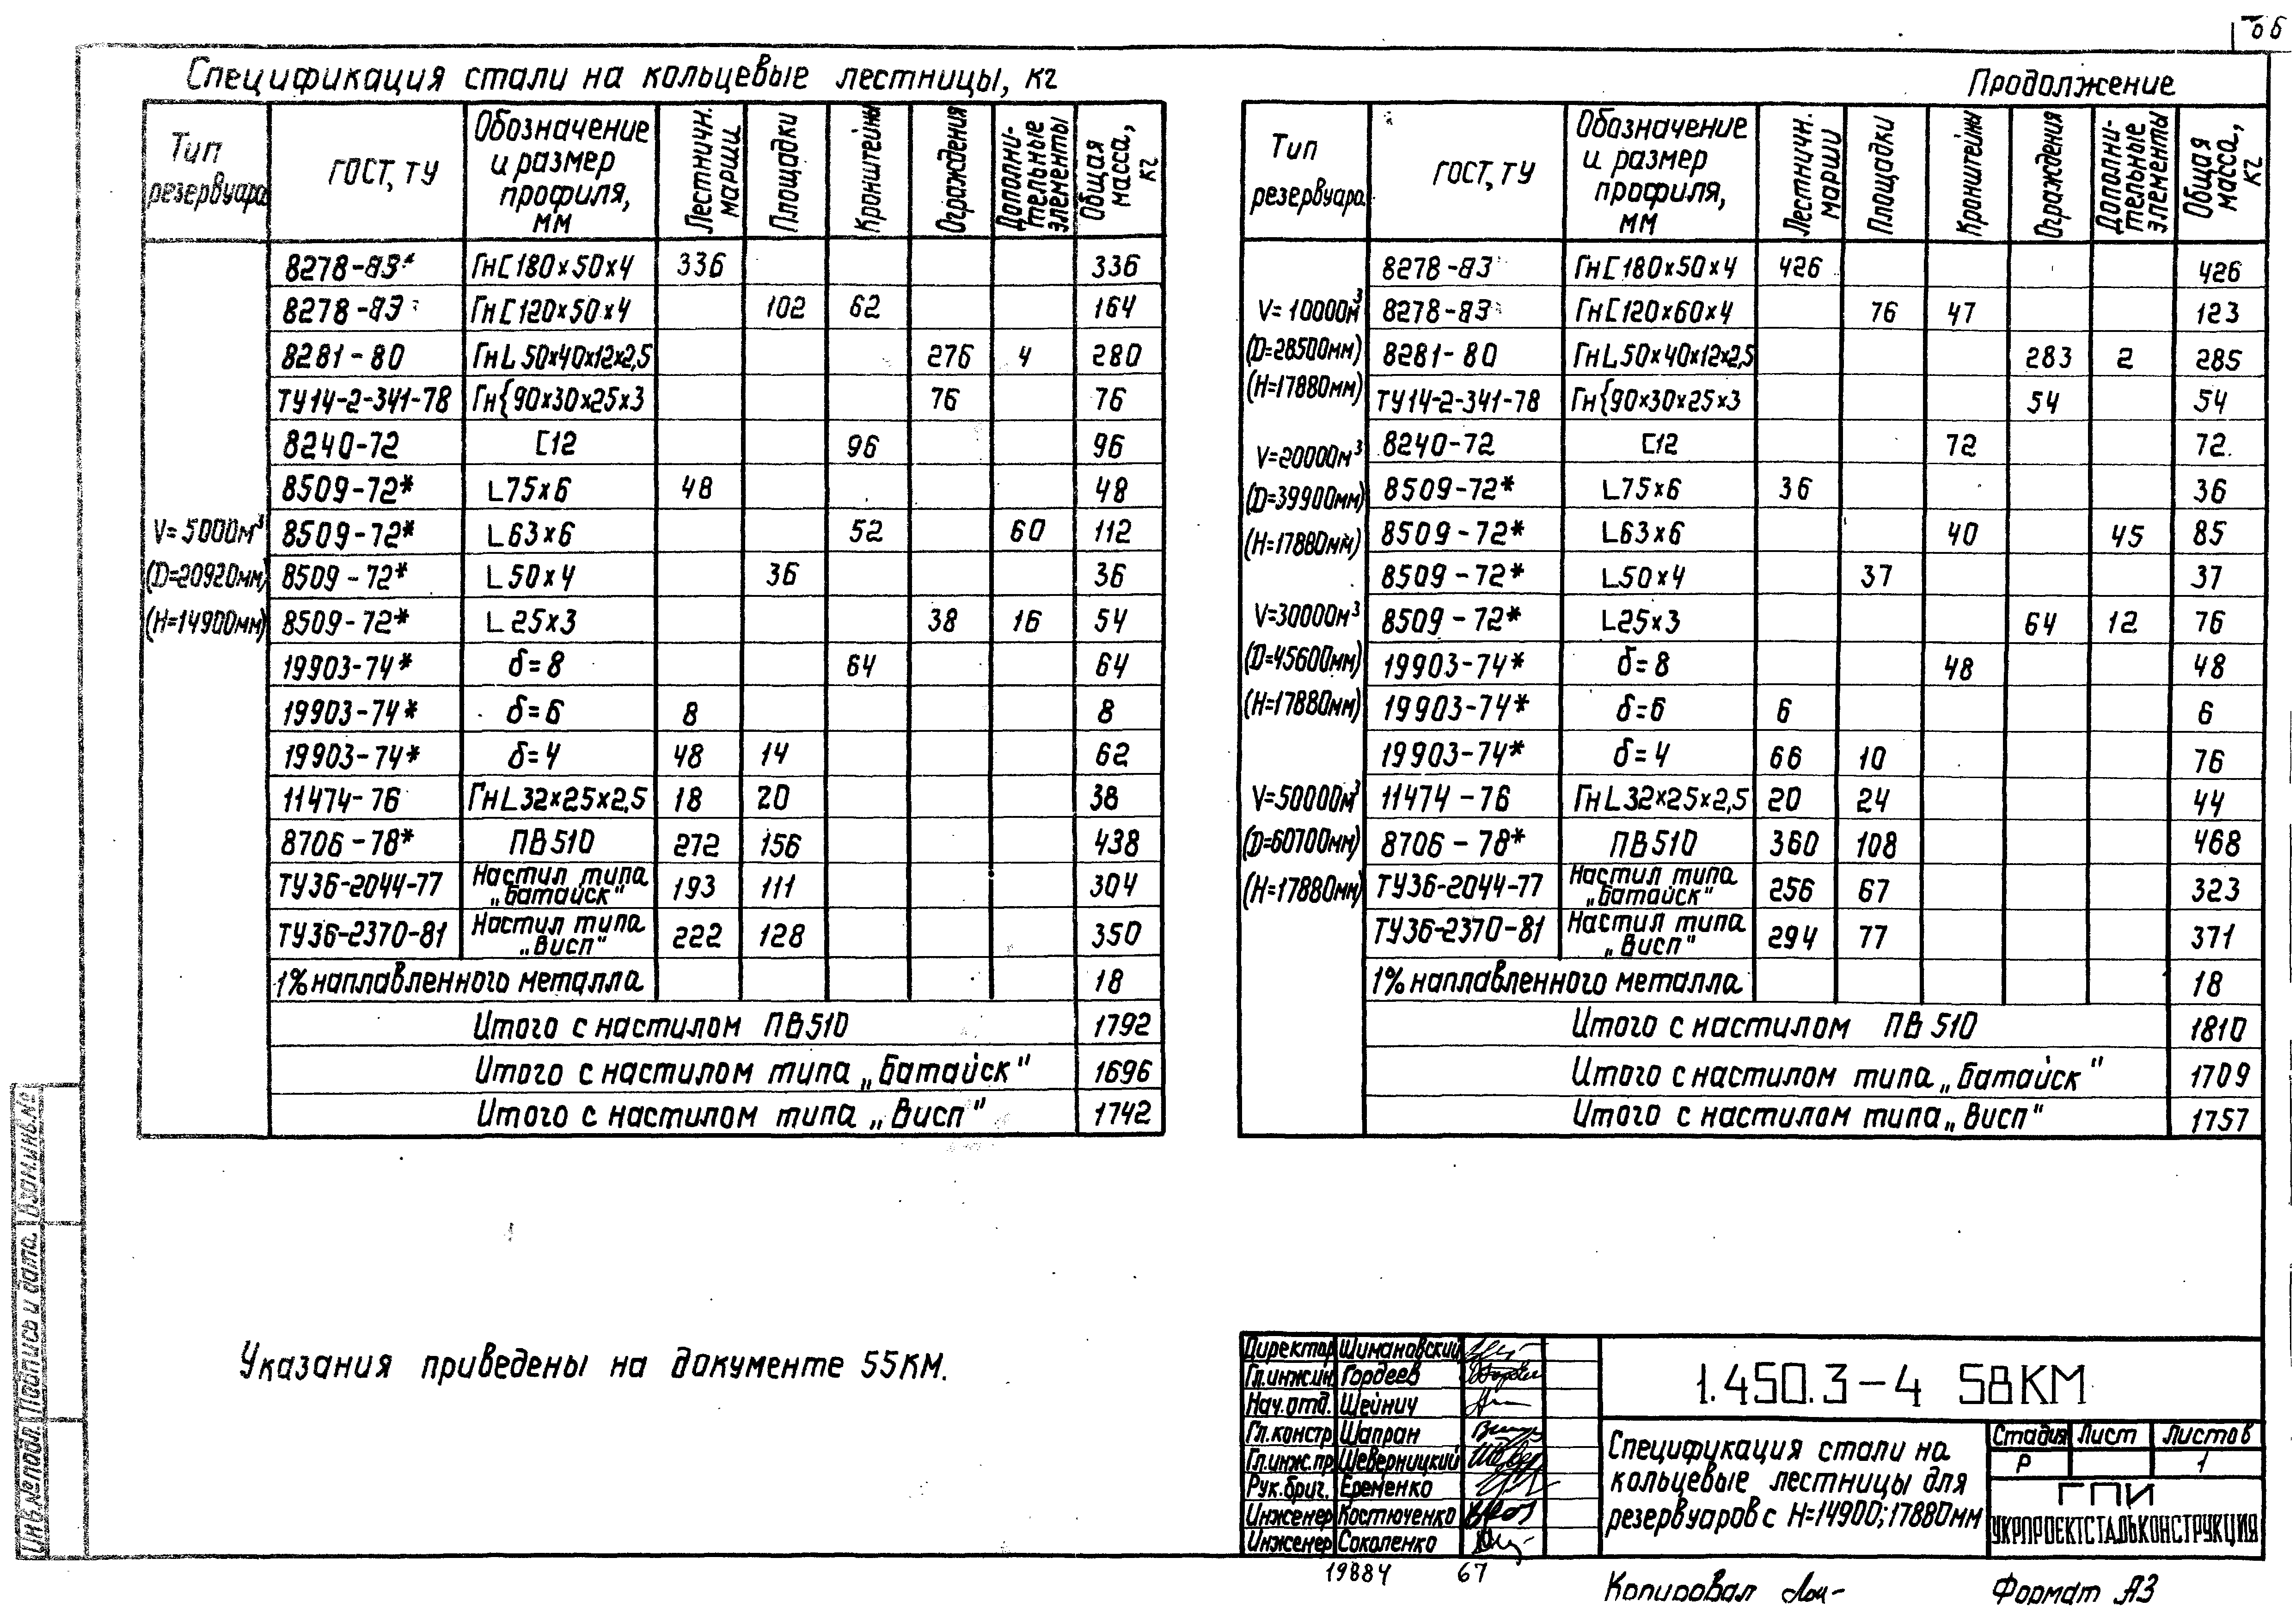 66
Спецификация стали на кольцевые лестницы, кг
Тип резервуара | ГОСТ, ТУ | Обозначение и размер профиля, мм | Лестничн. марши | Площадки | Кронштейны | Ограждения | Дополнительные элементы | Общая масса, кг
V=5000м³
(D=20920мм)
(H=14900мм)
8278-83* ГнС180×50×4 336 336
8278-83 ГнС120×50×4 102 62 164
8281-80 ГнL50×40×12×2,5 276 4 280
ТУ14-2-341-78 Гн{90×30×25×3 76 76
8240-72 С12 96 96
8509-72* L75×6 48 48
8509-72* L63×6 52 60 112
8509-72* L50×4 36 36
8509-72* L25×3 38 16 54
19903-74* δ=8 64 64
19903-74* δ=6 8 8
19903-74* δ=4 48 14 62
11474-76 ГнL32×25×2,5 18 20 38
8706-78* ПВ510 272 156 438
ТУ36-2044-77 Настил типа „Батайск" 193 111 304
ТУ36-2370-81 Настил типа „Висп" 222 128 350
1% наплавленного металла 18
Итого с настилом ПВ510 1792
Итого с настилом типа „Батайск" 1696
Итого с настилом типа „Висп" 1742
Продолжение
Тип резервуара | ГОСТ, ТУ | Обозначение и размер профиля, мм | Лестничн. марши | Площадки | Кронштейны | Ограждения | Дополнительные элементы | Общая масса, кг
V=10000м³
(D=28500мм)
(H=17880мм)
V=20000м³
(D=39900мм)
(H=17880мм)
V=30000м³
(D=45600мм)
(H=17880мм)
V=50000м³
(D=60700мм)
(H=17880мм)
8278-83 ГнС180×50×4 426 426
8278-83 ГнС120×60×4 76 47 123
8281-80 ГнL50×40×12×2,5 283 2 285
ТУ14-2-341-78 Гн{90×30×25×3 54 54
8240-72 С12 72 72
8509-72* L75×6 36 36
8509-72* L63×6 40 45 85
8509-72* L50×4 37 37
8509-72* L25×3 64 12 76
19903-74* δ=8 48 48
19903-74* δ=6 6 6
19903-74* δ=4 66 10 76
11474-76 ГнL32×25×2,5 20 24 44
8706-78* ПВ510 360 108 468
ТУ36-2044-77 Настил типа „Батайск" 256 67 323
ТУ36-2370-81 Настил типа „Висп" 294 77 371
1% наплавленного металла 18
Итого с настилом ПВ510 1810
Итого с настилом типа „Батайск" 1709
Итого с настилом типа „Висп" 1757
Указания приведены на документе 55КМ.
Инв.№подл. Подпись и дата Взам.инв.№
Директор Шимановский
Гл.инж.ин. Гордеев
Нач.отд. Шейнич
Гл.констр Шапран
Гл.инж.пр. Шеверницкий
Рук.бриг. Еременко
Инженер Костюченко
Инженер Соколенко
1.450.3-4 58КМ
Спецификация стали на
кольцевые лестницы для
резервуаров с H=14900;17880мм
Стадия Лист Листов
Р 1
ГПИ
УКРПРОЕКТСТАЛЬКОНСТРУКЦИЯ
19884 67
Копировал
Формат А3